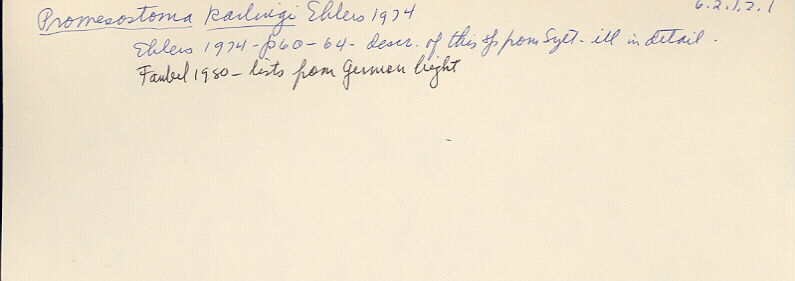 Promesostoma karlingi Ehlers 1974 6.2.1.2.1
Ehlers 1974 - p60-64 - descr. of this sp from Sylt - ill in detail.
Faubel 1980 - lists from German bight